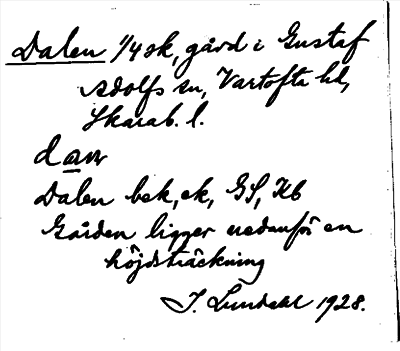 Dalen 1/4 sk, gård i Gustaf
Adolfs sn, Vartofta hd,
Skarab. l.
dan
Dalen bek, ek, GS, Kb
Gården ligger nedanför en
höjdsträckning
J. Lundahl 1928.